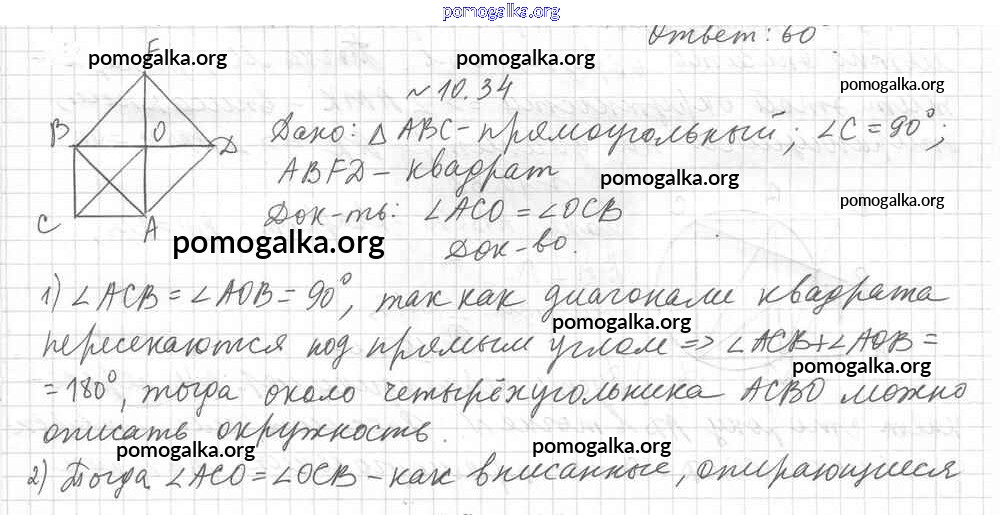 pomogalka.org
Ответ: 60°
F
pomogalka.org
pomogalka.org
pomogalka.org
№10.34
B
O
D
Дано: △ABC – прямоугольный; ∠C = 90°;
ABFD – квадрат
pomogalka.org
pomogalka.org
C
A
Док-ть: ∠ACO = ∠OCB
pomogalka.org
Док-во.
1) ∠ACB = ∠AOB = 90°, так как диагонали квадрата
pomogalka.org
пересекаются под прямым углом => ∠ACB+∠AOB =
pomogalka.org
= 180°, тогда около четырёхугольника ACBO можно
описать окружность.
pomogalka.org
pomogalka.org
2) Тогда ∠ACO = ∠OCB – как вписанные, опирающиеся